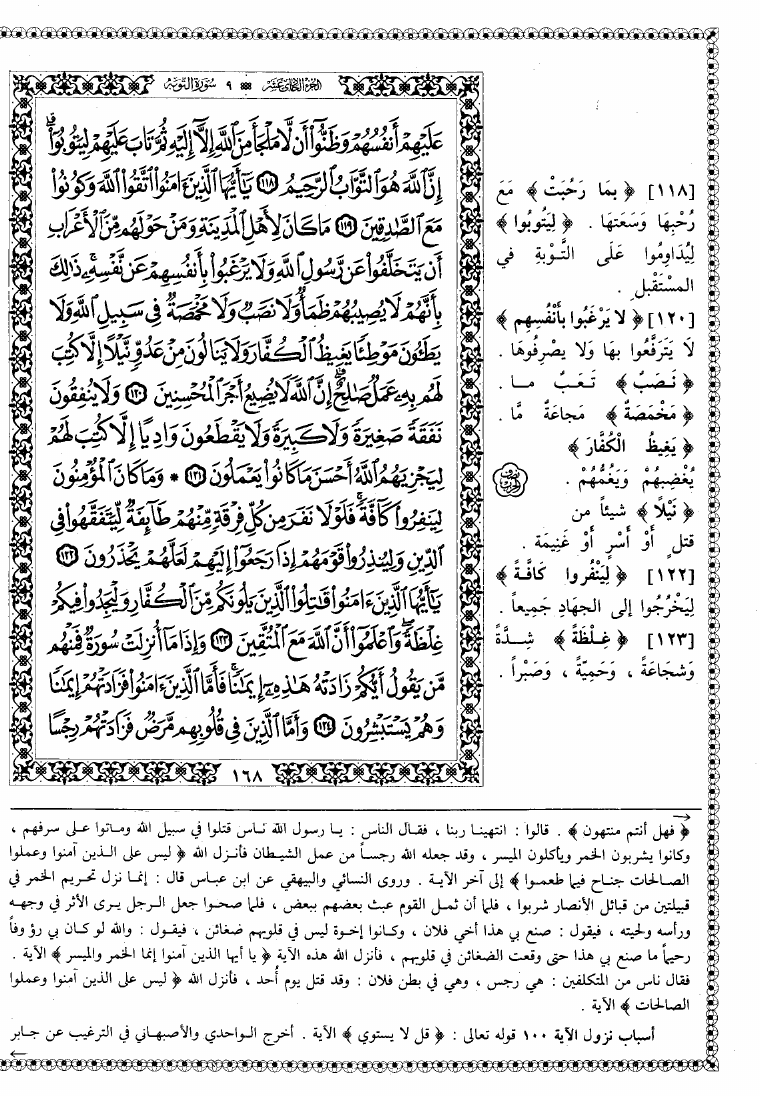 الجزء الحادي عشر ٩ سورة التوبة
عَلَيْهِمْ أَنفُسُهُمْ وَظَنُّوٓا۟ أَن لَّا مَلْجَأَ مِنَ ٱللَّهِ إِلَّآ إِلَيْهِ ثُمَّ تَابَ عَلَيْهِمْ لِيَتُوبُوٓا۟ۚ
إِنَّ ٱللَّهَ هُوَ ٱلتَّوَّابُ ٱلرَّحِيمُ ١١٨ يَٰٓأَيُّهَا ٱلَّذِينَ ءَامَنُوا۟ ٱتَّقُوا۟ ٱللَّهَ وَكُونُوا۟
مَعَ ٱلصَّٰدِقِينَ ١١٩ مَا كَانَ لِأَهْلِ ٱلْمَدِينَةِ وَمَنْ حَوْلَهُم مِّنَ ٱلْأَعْرَابِ
أَن يَتَخَلَّفُوا۟ عَن رَّسُولِ ٱللَّهِ وَلَا يَرْغَبُوا۟ بِأَنفُسِهِمْ عَن نَّفْسِهِۦ ۚ ذَٰلِكَ
بِأَنَّهُمْ لَا يُصِيبُهُمْ ظَمَأٌ وَلَا نَصَبٌ وَلَا مَخْمَصَةٌ فِى سَبِيلِ ٱللَّهِ وَلَا
يَطَـُٔونَ مَوْطِئًا يَغِيظُ ٱلْكُفَّارَ وَلَا يَنَالُونَ مِنْ عَدُوٍّ نَّيْلًا إِلَّا كُتِبَ
لَهُم بِهِۦ عَمَلٌ صَٰلِحٌ ۚ إِنَّ ٱللَّهَ لَا يُضِيعُ أَجْرَ ٱلْمُحْسِنِينَ ١٢٠ وَلَا يُنفِقُونَ
نَفَقَةً صَغِيرَةً وَلَا كَبِيرَةً وَلَا يَقْطَعُونَ وَادِيًا إِلَّا كُتِبَ لَهُمْ
لِيَجْزِيَهُمُ ٱللَّهُ أَحْسَنَ مَا كَانُوا۟ يَعْمَلُونَ ١٢١ * وَمَا كَانَ ٱلْمُؤْمِنُونَ
لِيَنفِرُوا۟ كَآفَّةً ۚ فَلَوْلَا نَفَرَ مِن كُلِّ فِرْقَةٍ مِّنْهُمْ طَآئِفَةٌ لِّيَتَفَقَّهُوا۟ فِى
ٱلدِّينِ وَلِيُنذِرُوا۟ قَوْمَهُمْ إِذَا رَجَعُوٓا۟ إِلَيْهِمْ لَعَلَّهُمْ يَحْذَرُونَ ١٢٢
يَٰٓأَيُّهَا ٱلَّذِينَ ءَامَنُوا۟ قَٰتِلُوا۟ ٱلَّذِينَ يَلُونَكُم مِّنَ ٱلْكُفَّارِ وَلْيَجِدُوا۟ فِيكُمْ
غِلْظَةً ۚ وَٱعْلَمُوٓا۟ أَنَّ ٱللَّهَ مَعَ ٱلْمُتَّقِينَ ١٢٣ وَإِذَا مَآ أُنزِلَتْ سُورَةٌ فَمِنْهُم
مَّن يَقُولُ أَيُّكُمْ زَادَتْهُ هَٰذِهِۦٓ إِيمَٰنًا ۚ فَأَمَّا ٱلَّذِينَ ءَامَنُوا۟ فَزَادَتْهُمْ إِيمَٰنًا
وَهُمْ يَسْتَبْشِرُونَ ١٢٤ وَأَمَّا ٱلَّذِينَ فِى قُلُوبِهِم مَّرَضٌ فَزَادَتْهُمْ رِجْسًا
١٦٨
[١١٨] ﴿ بِمَا رَحُبَتْ ﴾ مَعَ
رُحْبِهَا وَسَعَتهَا . ﴿ لِيَتُوبُوا ﴾
لِيُدَاوِمُوا عَلَى التَّوْبَةِ في
المسْتَقْبلِ .
[١٢٠] ﴿ لا يَرْغَبُوا بأَنْفُسِهم ﴾
لَا يَتَرَفَّعُوا بهَا وَلا يصْرِفُوهَا .
﴿ نَـصَبٌ ﴾ تَـعَـبٌ مـا .
﴿ مَخْمَصَةٌ ﴾ مَجاعَةٌ مَّا .
﴿ يَغِيظُ الْكُفَّارَ ﴾
يُغْضِبهُمْ وَيَغُمُّهُمْ .
﴿ نَيْلًا ﴾ شيئاً من
قتلٍ أَوْ أسْرٍ أَوْ غَنِيمَة .
[١٢٢] ﴿ لِيَنْفُروا كَافَّةً ﴾
لِيَخْرُجُوا إلى الجهَادِ جَمِيعاً .
[١٢٣] ﴿ غِـلْظَةً ﴾ شِـدَّةً
وَشجَاعَةً ، وَحَمِيَّةً ، وَصَبْراً .
﴿ فهل أنتم منتهون ﴾ . قالوا : انتهينا ربنا ، فقال الناس : يا رسول الله ناس قتلوا في سبيل الله وماتوا على سرفهم ،
وكانوا يشربون الخمر ويأكلون الميسر ، وقد جعله الله رجساً من عمل الشيطان فأنزل الله ﴿ ليس على الذين آمنوا وعملوا
الصالحات جناح فيما طعموا ﴾ إلى آخر الآية . وروى النسائي والبيهقي عن ابن عباس قال : إنما نزل تحريم الخمر في
قبيلتين من قبائل الأنصار شربوا ، فلما أن ثمل القوم عبث بعضهم ببعض ، فلما صحوا جعل الرجل يرى الأثر في وجهه
ورأسه ولحيته ، فيقول : صنع بي هذا أخي فلان ، وكانوا إخوة ليس في قلوبهم ضغائن ، فيقول : والله لو كان بي رؤوفاً
رحيماً ما صنع بي هذا حتى وقعت الضغائن في قلوبهم ، فأنزل الله هذه الآية ﴿ يا أيها الذين آمنوا إنما الخمر والميسر ﴾ الآية .
فقال ناس من المتكلفين : هي رجس ، وهي في بطن فلان : وقد قتل يوم أُحد ، فأنزل الله ﴿ ليس على الذين آمنوا وعملوا
الصالحات ﴾ الآية .
أسباب نزول الآية ١٠٠ قوله تعالى : ﴿ قل لا يستوي ﴾ الآية . أخرج الواحدي والأصبهاني في الترغيب عن جابر